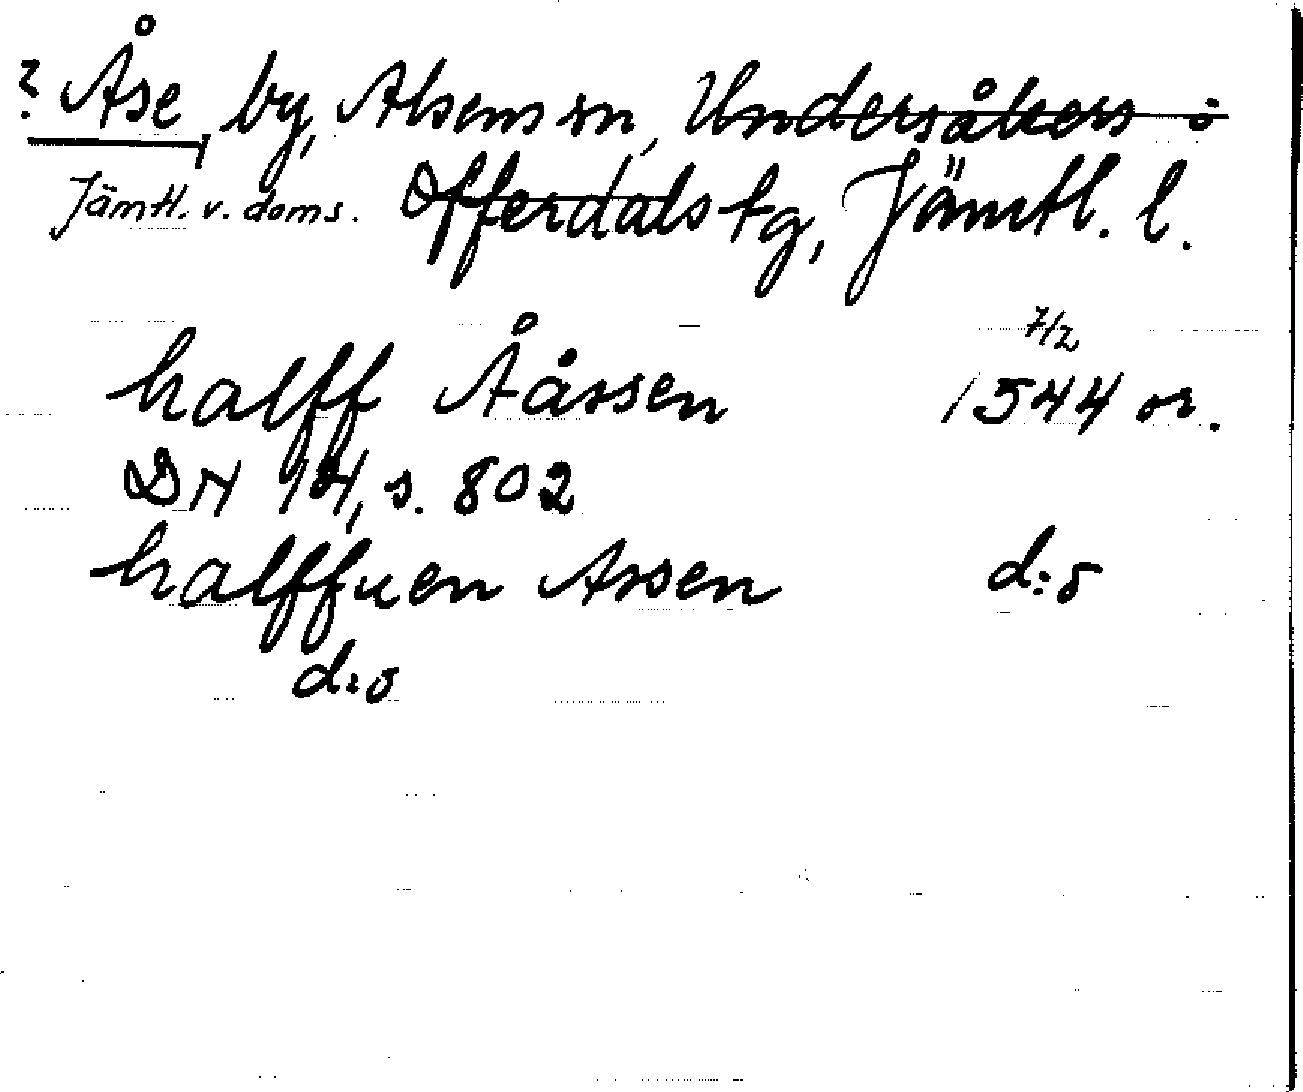 ? Åse by, Alsens sn, Undersåkers o
Jämtl. v. doms. Offerdals tg, Jämtl. l.
7/2
halff Ååssen 1544 or.
DN 14, s. 802
halffuen Assen d:o
d:o